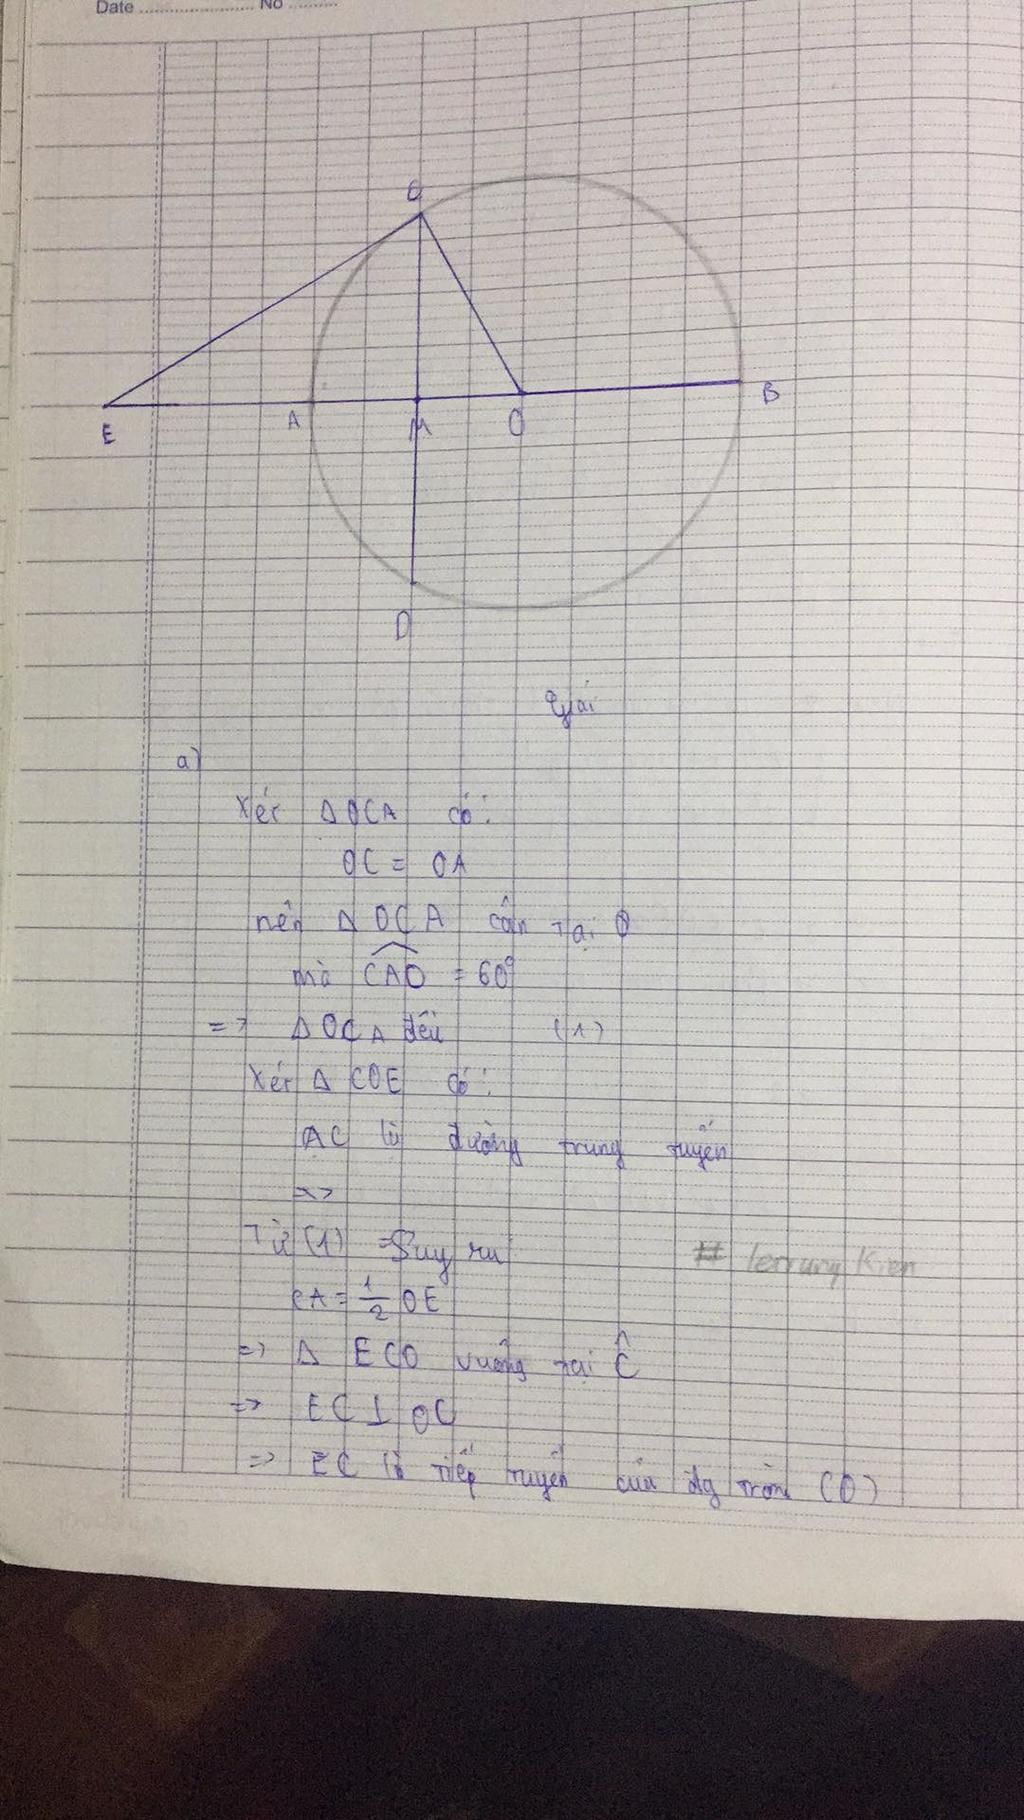 Date ........................ No .........
C
E
A
M
O
B
D
Giải
a)
Xét Δ OCA có:
OC = OA
nên Δ OCA cân tại O
mà CAO = 60°
=> Δ OCA đều (1)
Xét Δ COE có:
AC là đường trung tuyến
=>
Từ (1) => Suy ra
CA = 1/2 OE
=> Δ ECO vuông tại Ĉ
=> EC ⊥ OC
=> EC là tiếp tuyến của đg tròn (O)
# letrungkien